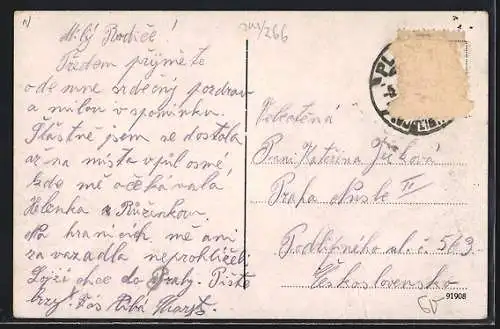 Milý Rodiče!
Předem přijměte
odemne srdečný pozdrav
a milou vspomínku.
Štastně jsem se dostala
až na místo v půl osmé,
kde mě očekávala
Helenka s Růženkou.
Na hranicích mě ani
zavazadla neprohlíželi
chce do Prahy. Pište
brzy. Vás líbá
243/266
Velectěná
Paní Kateřina
Praha Nusle II
Podlipného ul. č. 563.
Československo
91908